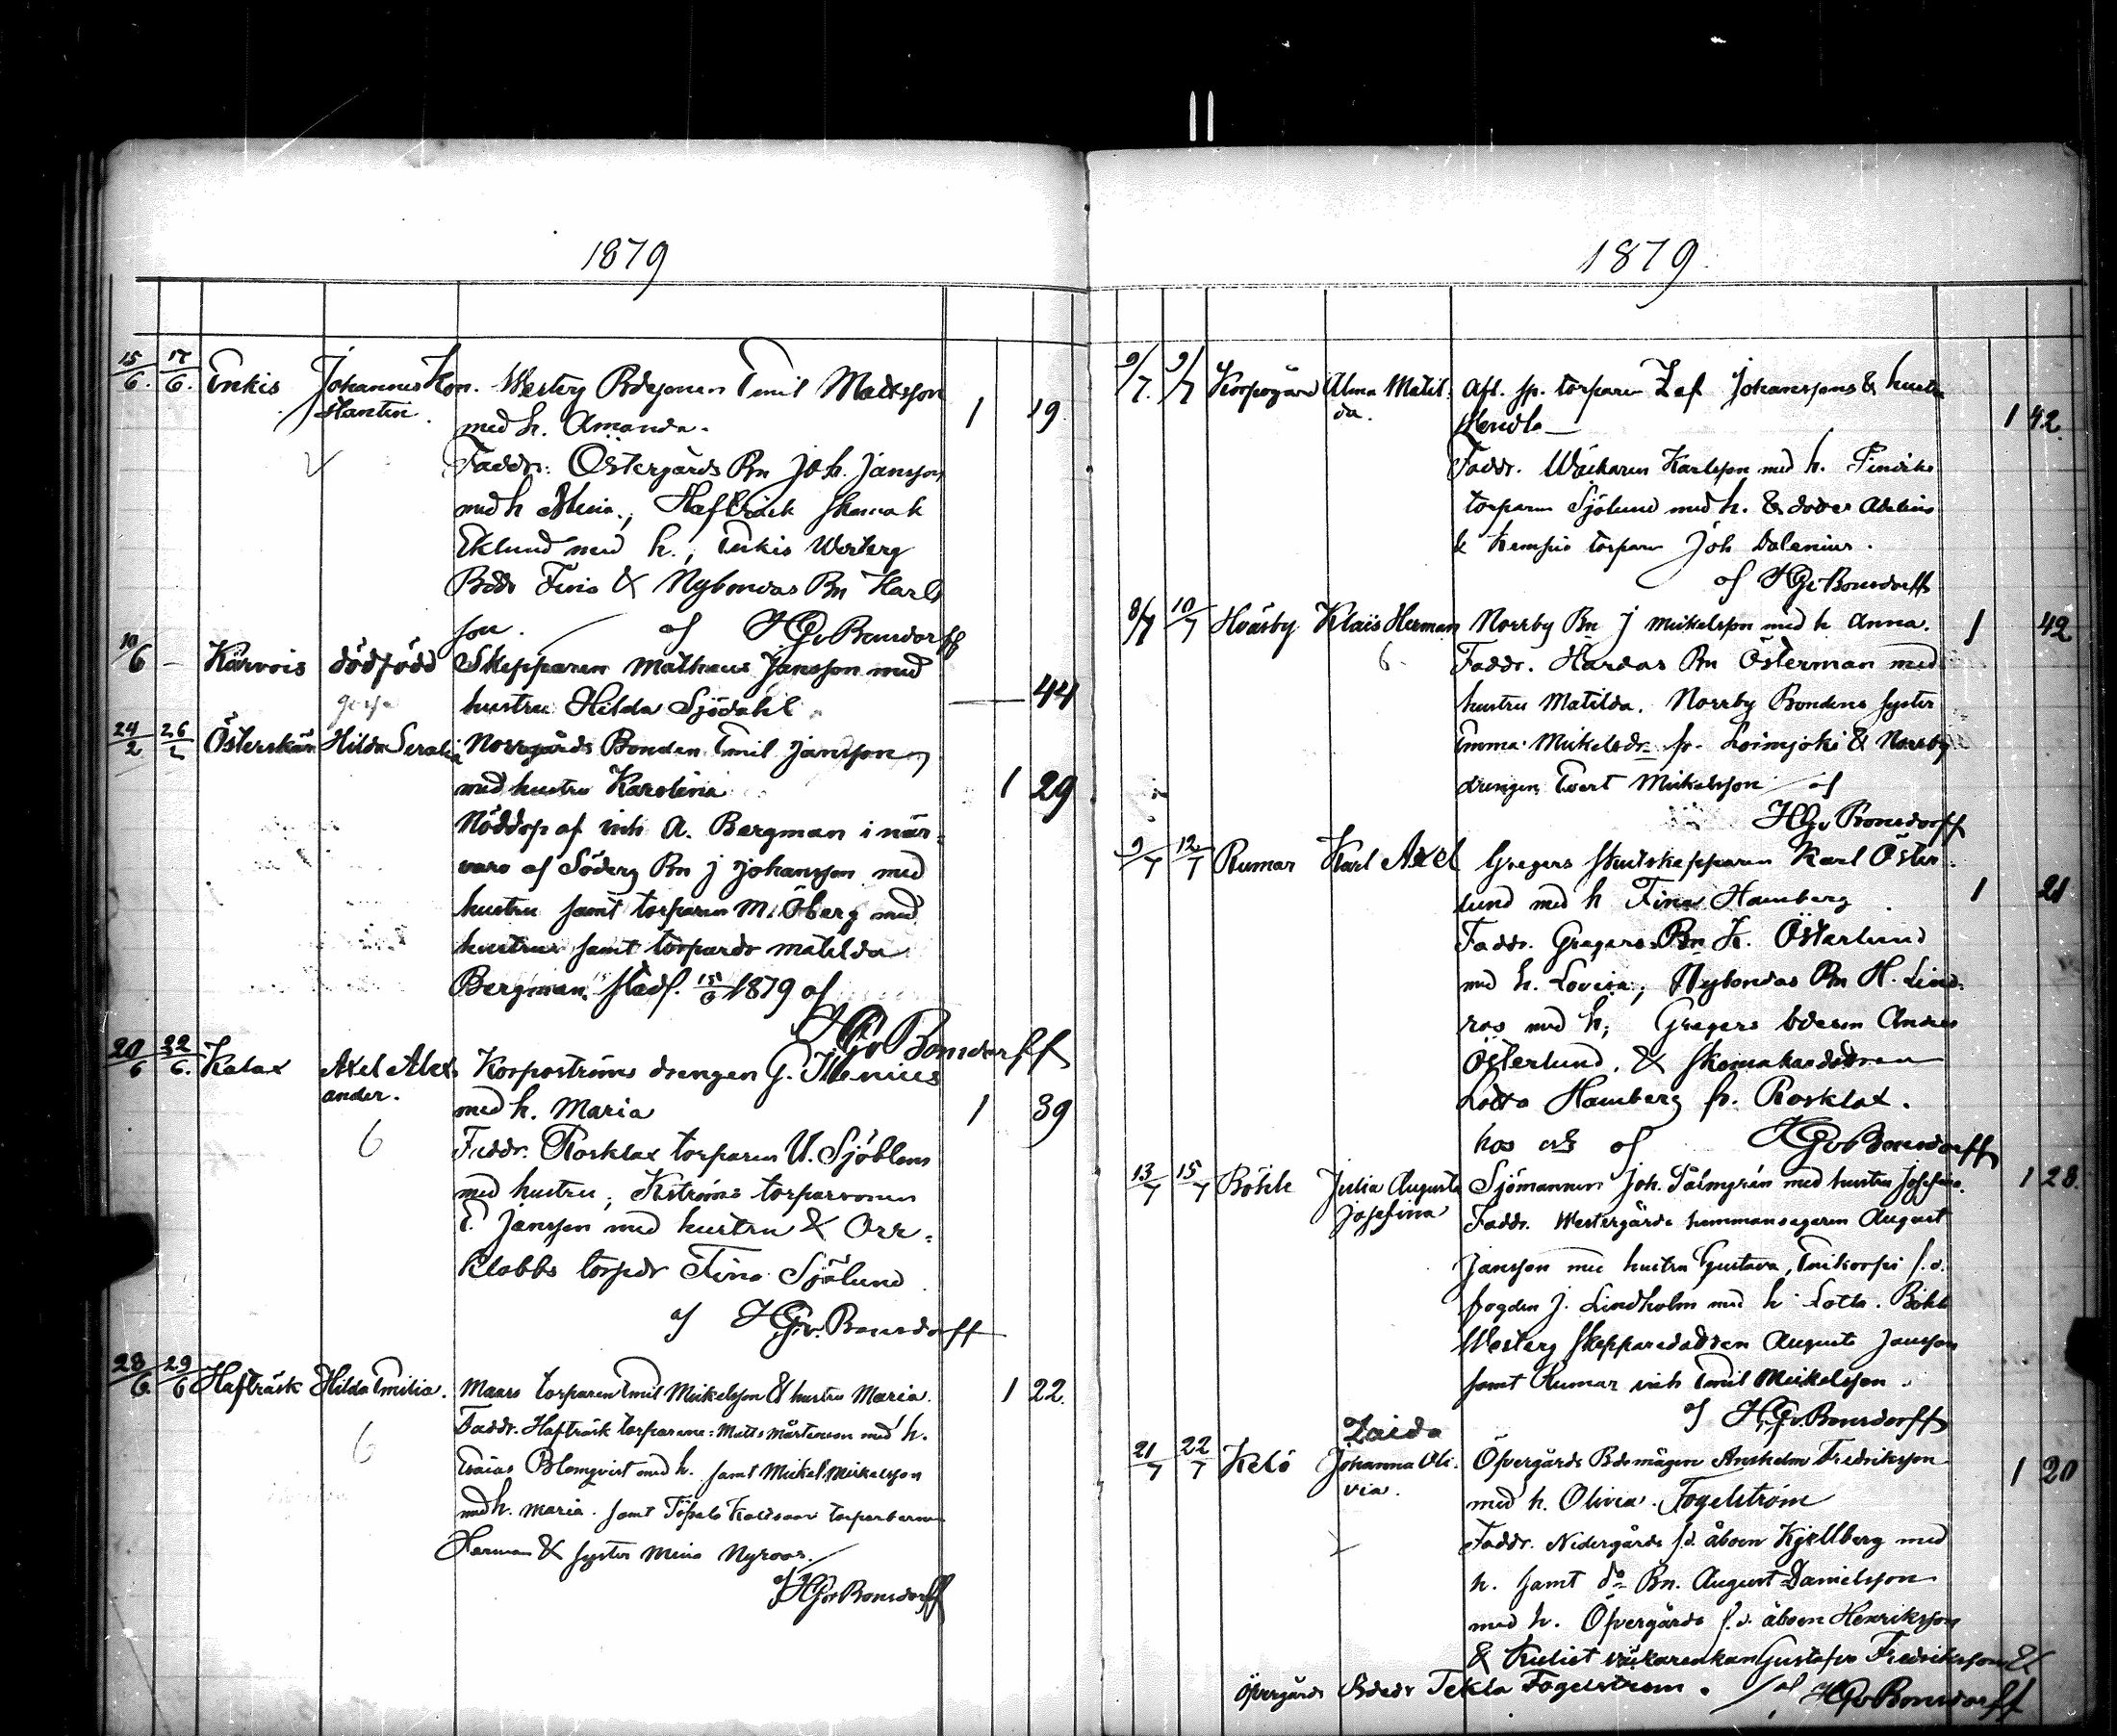 1879
15/6. 17/6. Enkis Johannes Kon- Westerg Bdesonen Emil Mattsson
stantin. med h. Amanda. 1 19
Faddr: Östergårds Bn Joh. Jansson
med h Mina., Hafträsk skomak
Eklund med h., Enkis Westerg
Bddr Fina & Nybondas Bn Karls
son. af HGvBonsdorff
10/6 — Kärvois dödfödd Skepparen Matheus Jansson med
gosse hustru Hilda Sjödahl — 44
24/2 26/2 Österskär Hilda Serafia Norrgårds Bonden Emil Jansson
med hustru Karolina 1 29
Nöddop af inh A. Bergman i när-
varo af Söderg Bn J Johansson med
hustru samt torparen M. Öberg med
hustru samt torpardr Matilda
Bergman. stadf. 15/6 1879 af
HGvBonsdorff
20/6 22/6. Kalax Axel Alex- Korpoströms drengen G. Henius
ander. med h. Maria 1 39
6 Faddr. Rosklax torparen U. Sjöblom
med hustru; Kströms torparsonen
E. Jansson med hustru & Orr-
klobbs torpdr Fina Sjölund
af HGv.Bonsdorff
28/6 29/6 Hafträsk Hilda Emilia. Maars torparen Emil Mickelsson & hustru Maria. 1 22.
6 Faddr. Hafträsk torparene: Matts Mårtenson med h.
Esaias Blomqvist med h. samt Mickel Mickelsson
med h. Maria. samt torparbarnen
Herman & syster Mina Nyroos.
af HGvBonsdorff
1879.
9/7. 9/7 Korpogård Alma Matil- Afl. sp. torparen Zef Johanssons & hustru
da. Hendla — 1 42.
Faddr. Wäckaren Karlsson med h.
torparen Sjölund med h. & dotter Adelina
& torparen Joh Dalenius.
af HGvBonsdorff
8/7 10/7 Hväsby Klais Herman Norrby Bn J Mickelsson med h Anna. 1 42
6. Faddr. Hardas Bn Österman med
hustru Matilda. Norrby Bondens syster
Emma Mickelsdr fr. Loimjoki & Norrby
drengen Evert Mickelsson af
HGvBonsdorff
9/7 12/7 Rumar Karl Axel Gregers skutskepparen Karl Öster-
lund med h Fina Hamberg 1 21
Faddr. Gregers Bn K. Österlund
med h. Lovisa; Nybondas Bn H. Lind-
ros med h; Gregers bdesn Anders
Österlund, & skomakaredottren
Lotta Hamberg fr. Rosklax.
hos af HGvBonsdorff
13/7 15/7 Böhle Julia Augusta Sjömannen Joh. Palmgrén med hustru Josefina. 1 28.
Josefina Faddr. Westergårds hemmansegaren August
Jansson med hustru Gustava, f.d.
fogden J. Lindholm med h Lotta. Böhle
Westerg Skepparedottren Augusta Jansson
samt Rumar inh Emil Mickelsson.
af HGvBonsdorff
Zaida
21/7 22/7 Retö Johanna Oli- Öfvergårds Bdemågen Anshelm Fredriksson 1 20
via. med h. Olivia Fogelström
Faddr. Nedergårds f.d. åboen Kjellberg med
h. samt do Bn. August Danielsson
med h. Öfvergårds f.d. åboen Henriksson
& väckareenkan Gustafva Fredriksson &
Öfvergårds Bdedr Tekla Fogelström. / af HGvBonsdorff